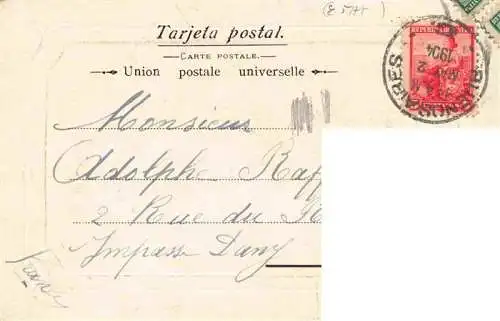 Tarjeta postal.
CARTE POSTALE.
Union postale universelle
REPUBLICA
BUENOS AIRES
2
1904
Monsieur
Adolphe Raff
2 Rue du R
Impasse Dany
France